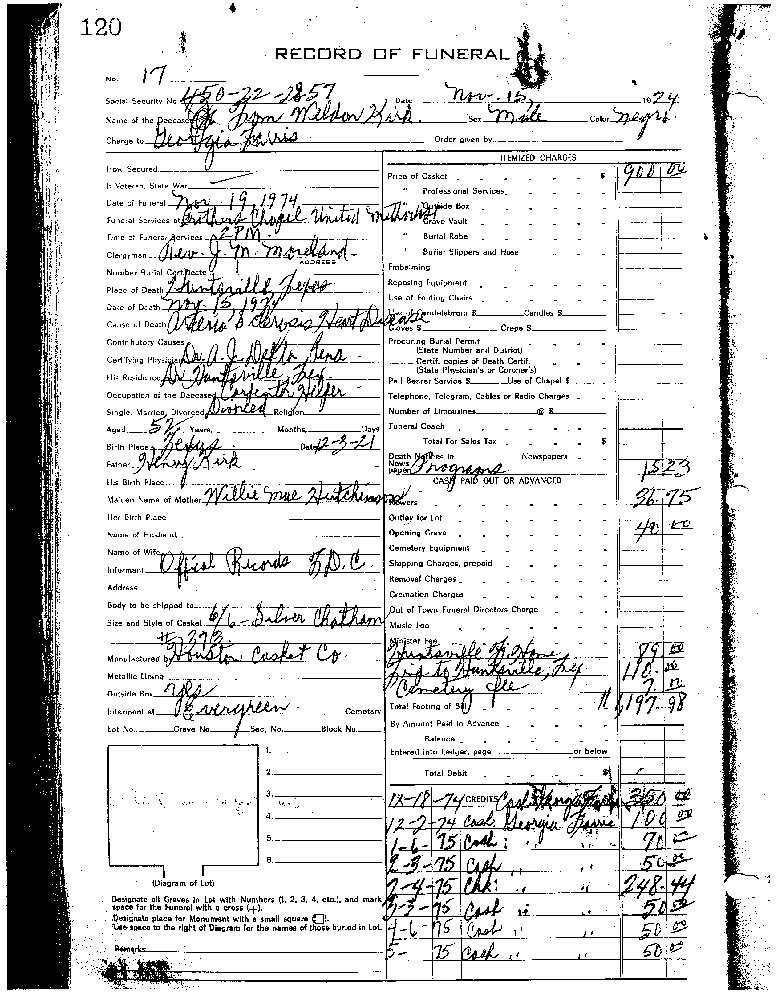 120
RECORD OF FUNERAL
No. 17
Social Security No. 450-22-2857 Date Nov. 15, 1974
Name of the Deceased Tom Weldon Kirk Sex Male Color Negro
Charge to Georgia Farris Order given by
How Secured
Is Veteran, State War
Date of Funeral Nov. 19, 1974
Funeral Services at Chapel United Methodist
Time of Funeral Services 2 PM
Clergyman Rev. J. M. Moreland
ADDRESS
Number Burial Certificate
Place of Death Huntsville, Texas
Date of Death Nov. 15, 1974
Cause of Death Heart Disease
Contributory Causes
Certifying Physician Dr. A. J.
His Residence Huntsville, Tex
Occupation of the Deceased Carpenter Helper
Single, Married, Divorced Divorced Religion
Aged 52 Years, Months, Days
Birth Place Texas Date 12-3-21
Father Henry Kirk
His Birth Place
Maiden Name of Mother Willie Mae
Her Birth Place
Name of Husband
Name of Wife
Informant Offical Records T.D.C.
Address
Body to be shipped to
Size and Style of Casket 6/6 - Silver Chatham
# 393
Manufactured by Houston Casket Co.
Metallic Lining
Outside Box Yes
Interment at Evergreen Cemetery
Lot No. Grave No. Sec. No. Block No.
1.
2.
3.
4.
5.
6.
(Diagram of Lot)
Designate all Graves in Lot with Numbers (1, 2, 3, 4, etc.), and mark
space for the Funeral with a cross (+).
Designate place for Monument with a small square (□).
Use space to the right of Diagram for the names of those buried in Lot.
Remarks
ITEMIZED CHARGES
Price of Casket $ 900 00
" Professional Services
" Outside Box
" Grave Vault
" Burial Robe
" Burial Slippers and Hose
Embalming
Reposing Equipment
Use of Folding Chairs
Candelabrum $ Candles $
Gloves $ Crepe $
Procuring Burial Permit
(State Number and District)
Certif. copies of Death Certif.
(State Physician's or Coroner's)
Pall Bearer Service $ Use of Chapel $
Telephone, Telegram, Cables or Radio Charges
Number of Limousines @ $
Funeral Coach
Total For Sales Tax $
Death Notices in Newspapers
Newspaper Programs 15 23
CASH PAID OUT OR ADVANCED
Flowers 36 75
Outlay for Lot
Opening Grave 40 00
Cemetery Equipment
Shipping Charges, prepaid
Removal Charges
Cremation Charges
Out of Town Funeral Directors Charge
Music Fee
Minister Fee
Huntsville F. Home 89 00
Trip to Huntsville, Tex 110 00
Cemetery fee 7 00
Total Footing of Bill 1,197 98
By Amount Paid in Advance
Balance
Entered into Ledger, page or below
Total Debit $
-18-74 CREDITS Cash 350 00
12-2-74 Cash Georgia Farris 100 00
1-6-75 Cash " " 70
2-3-75 Cash " " 50 00
-4-75 Chk: " 248 44
-3-75 Cash " " 50 00
4-6-75 Cash " " 50 00
5- 75 Cash " " 50 00